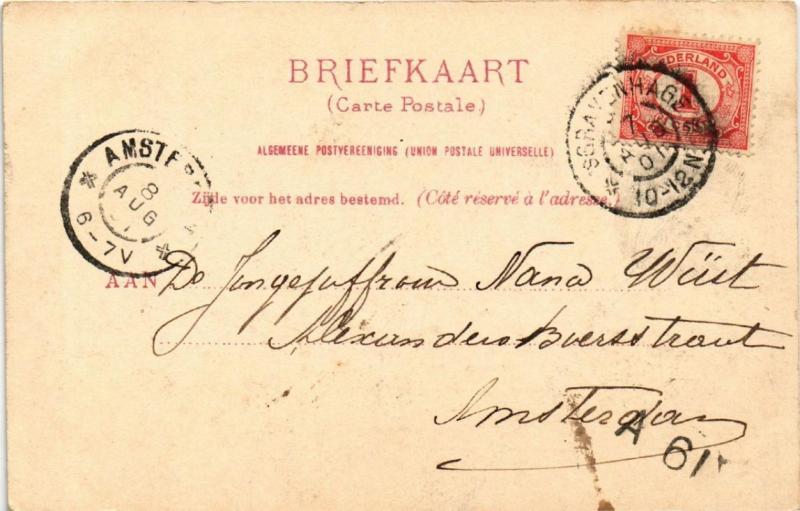 BRIEFKAART
(Carte Postale)
ALGEMEENE POSTVEREENIGING (UNION POSTALE UNIVERSELLE)
Zijde voor het adres bestemd. (Côté réservé à l'adresse.)
NEDERLAND
1
'SGRAVENHAGE
01
10-12N
AMSTE
8
AUG
6-7V
AAN De Jongejuffrouw Nana Wüst
Alexander Boersstraat
Amsterdam
A 61